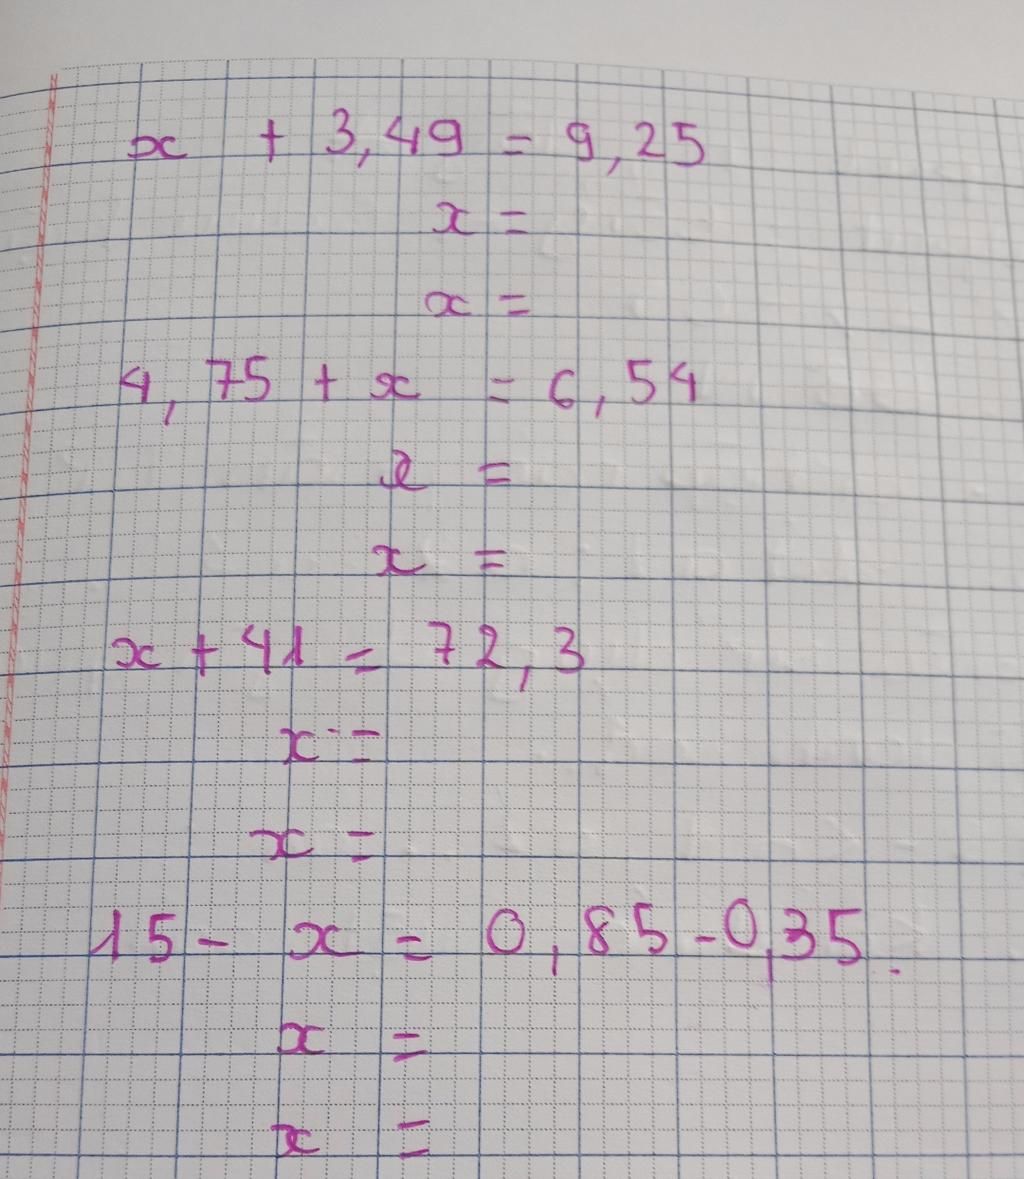 x + 3,49 = 9,25
x =
x =
4,75 + x = 6,54
x =
x =
x + 41 = 72,3
x =
x =
15 - x = 0,85 - 0,35.
x =
x =